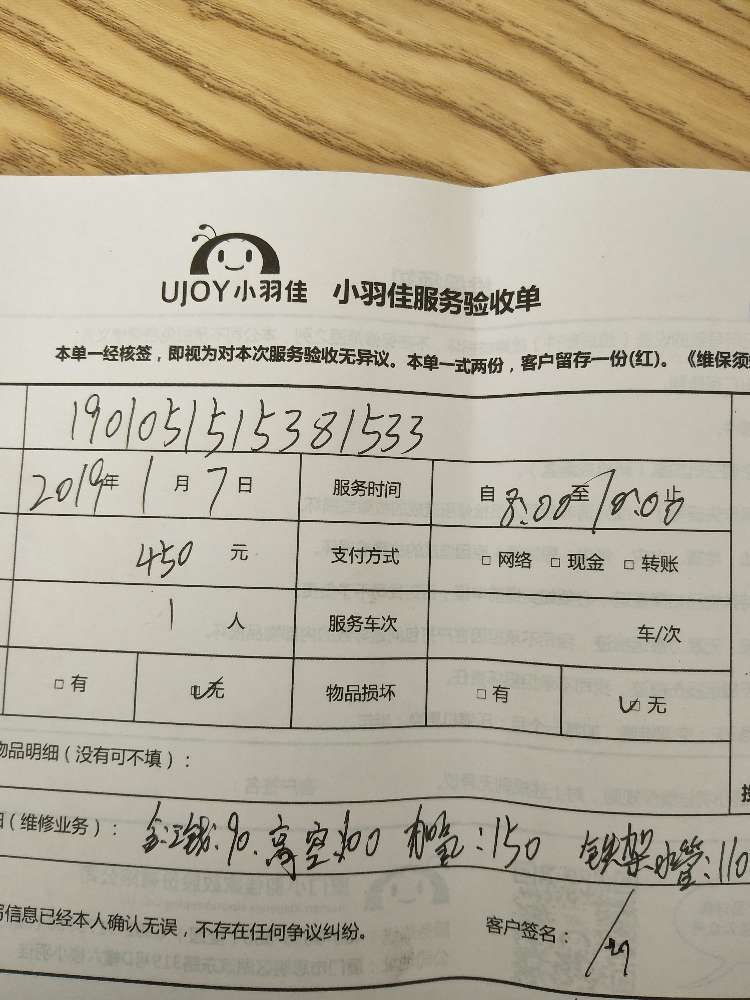 UJOY小羽佳 小羽佳服务验收单
本单一经核签，即视为对本次服务验收无异议。本单一式两份，客户留存一份(红)。《维保须
1901051515381533
2019年 1月 7日 服务时间 自 8:00 至 10:00 止
450 元 支付方式 □ 网络 □ 现金 □ 转账
1 人 服务车次 车/次
□ 有 □ 无 物品损坏 □ 有 □ 无
物品明细（没有可不填）：
（维修业务）： 90. 高空:100 :150 铁架水管:110
信息已经本人确认无误，不存在任何争议纠纷。 客户签名：